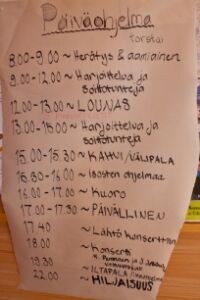 Päiväohjelma
Torstai
8.00-9.00 ~ Herätys & aamiainen
9.00-12.00 ~ Harjoittelua ja
soittotunteja
12.00-13.00 ~ LOUNAS
13.00-15.00 ~ Harjoittelua ja
soittotunteja
15.00-15.30 ~ KAHVI/VÄLIPALA
15.30-16.00 ~ Isosten ohjelmaa
16.00-17.00 ~ Kuoro
17.00-17.30 ~ PÄIVÄLLINEN
17.40 ~ Lähtö konserttiin
18.00 ~ Konsertti
19.30 ~ ILTAPALA
22.00 ~ HILJAISUUS